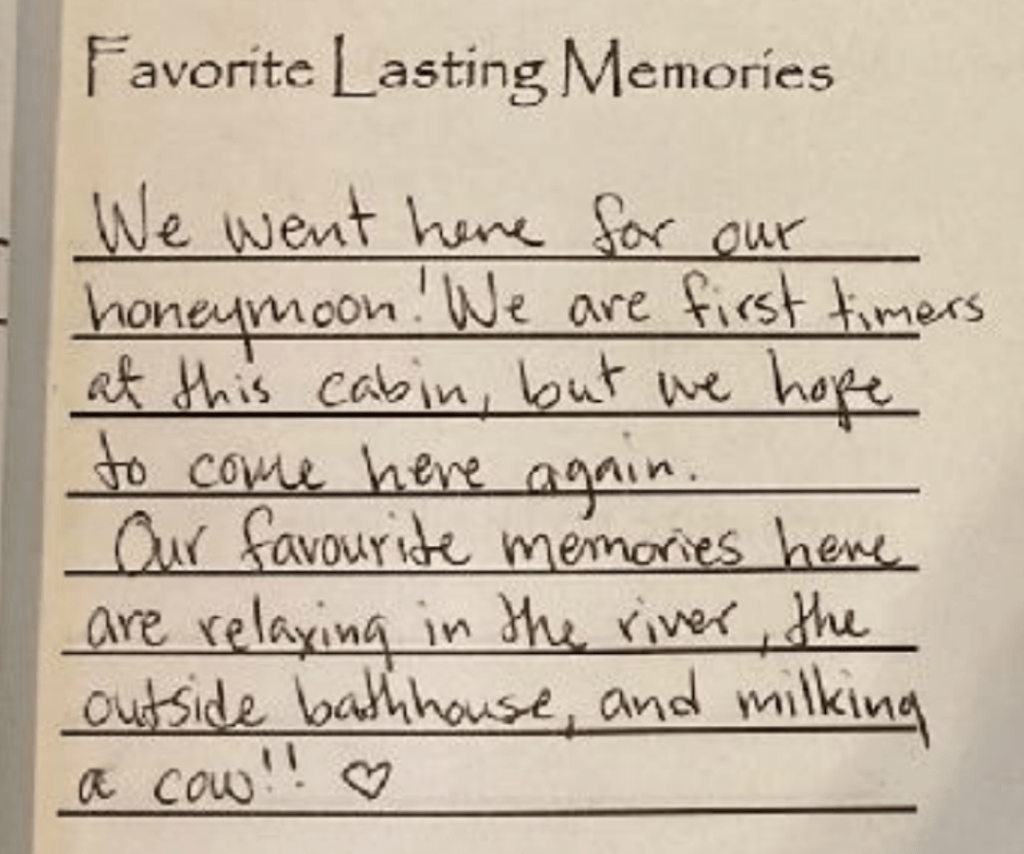 Favorite Lasting Memories
We went here for our
honeymoon! We are first timers
at this cabin, but we hope
to come here again.
Our favourite memories here
are relaxing in the river, the
outside bathhouse, and milking
a cow!! ♡